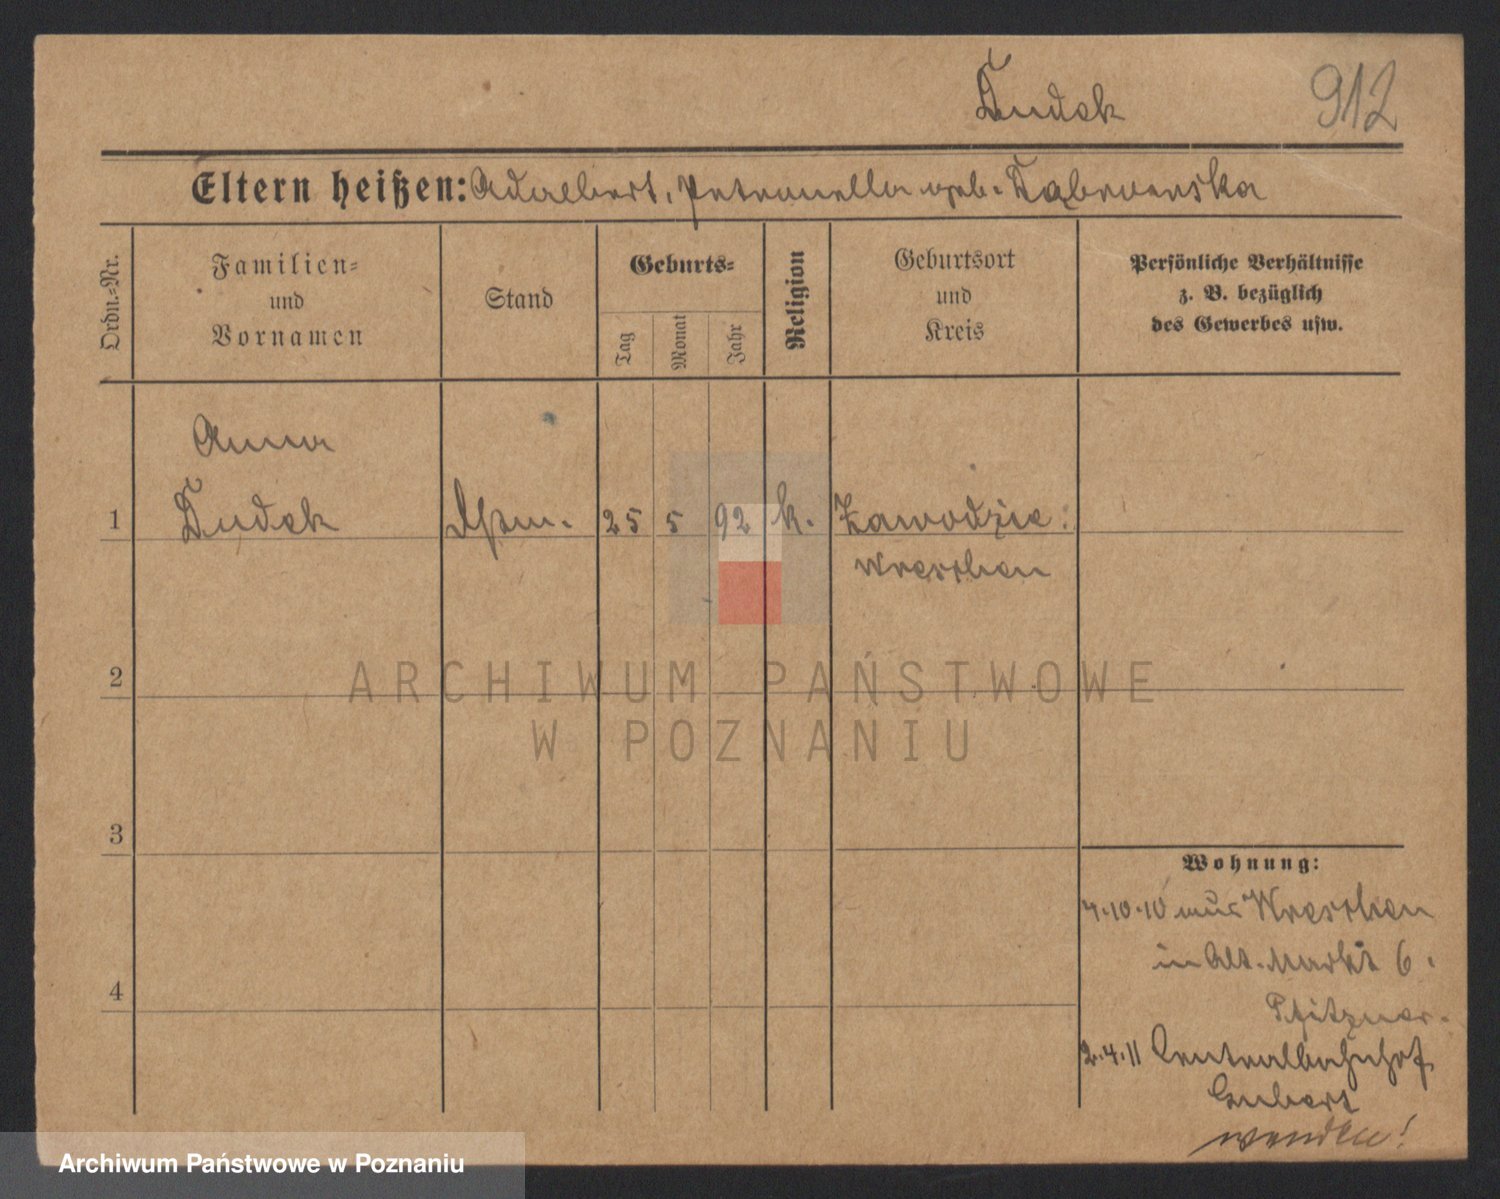 Dudek 912
Eltern heißen: Adalbert, Petronella geb. Dąbrowska
Ordn.-Nr.
Familien-
und
Vornamen
Stand
Geburts-
Tag
Monat
Jahr
Religion
Geburtsort
und
Kreis
Persönliche Verhältnisse
z. B. bezüglich
des Gewerbes usw.
Anna
1 Dudek 25 5 92 k. Zawodzie
Wreschen
2
ARCHIWUM PAŃSTWOWE
W POZNANIU
3
Wohnung:
4.10.10 aus Wreschen
in Alt. Markt 6.
4
Pfitzner.
2.4.11 Centralbahnhof
wenden!
Archiwum Państwowe w Poznaniu